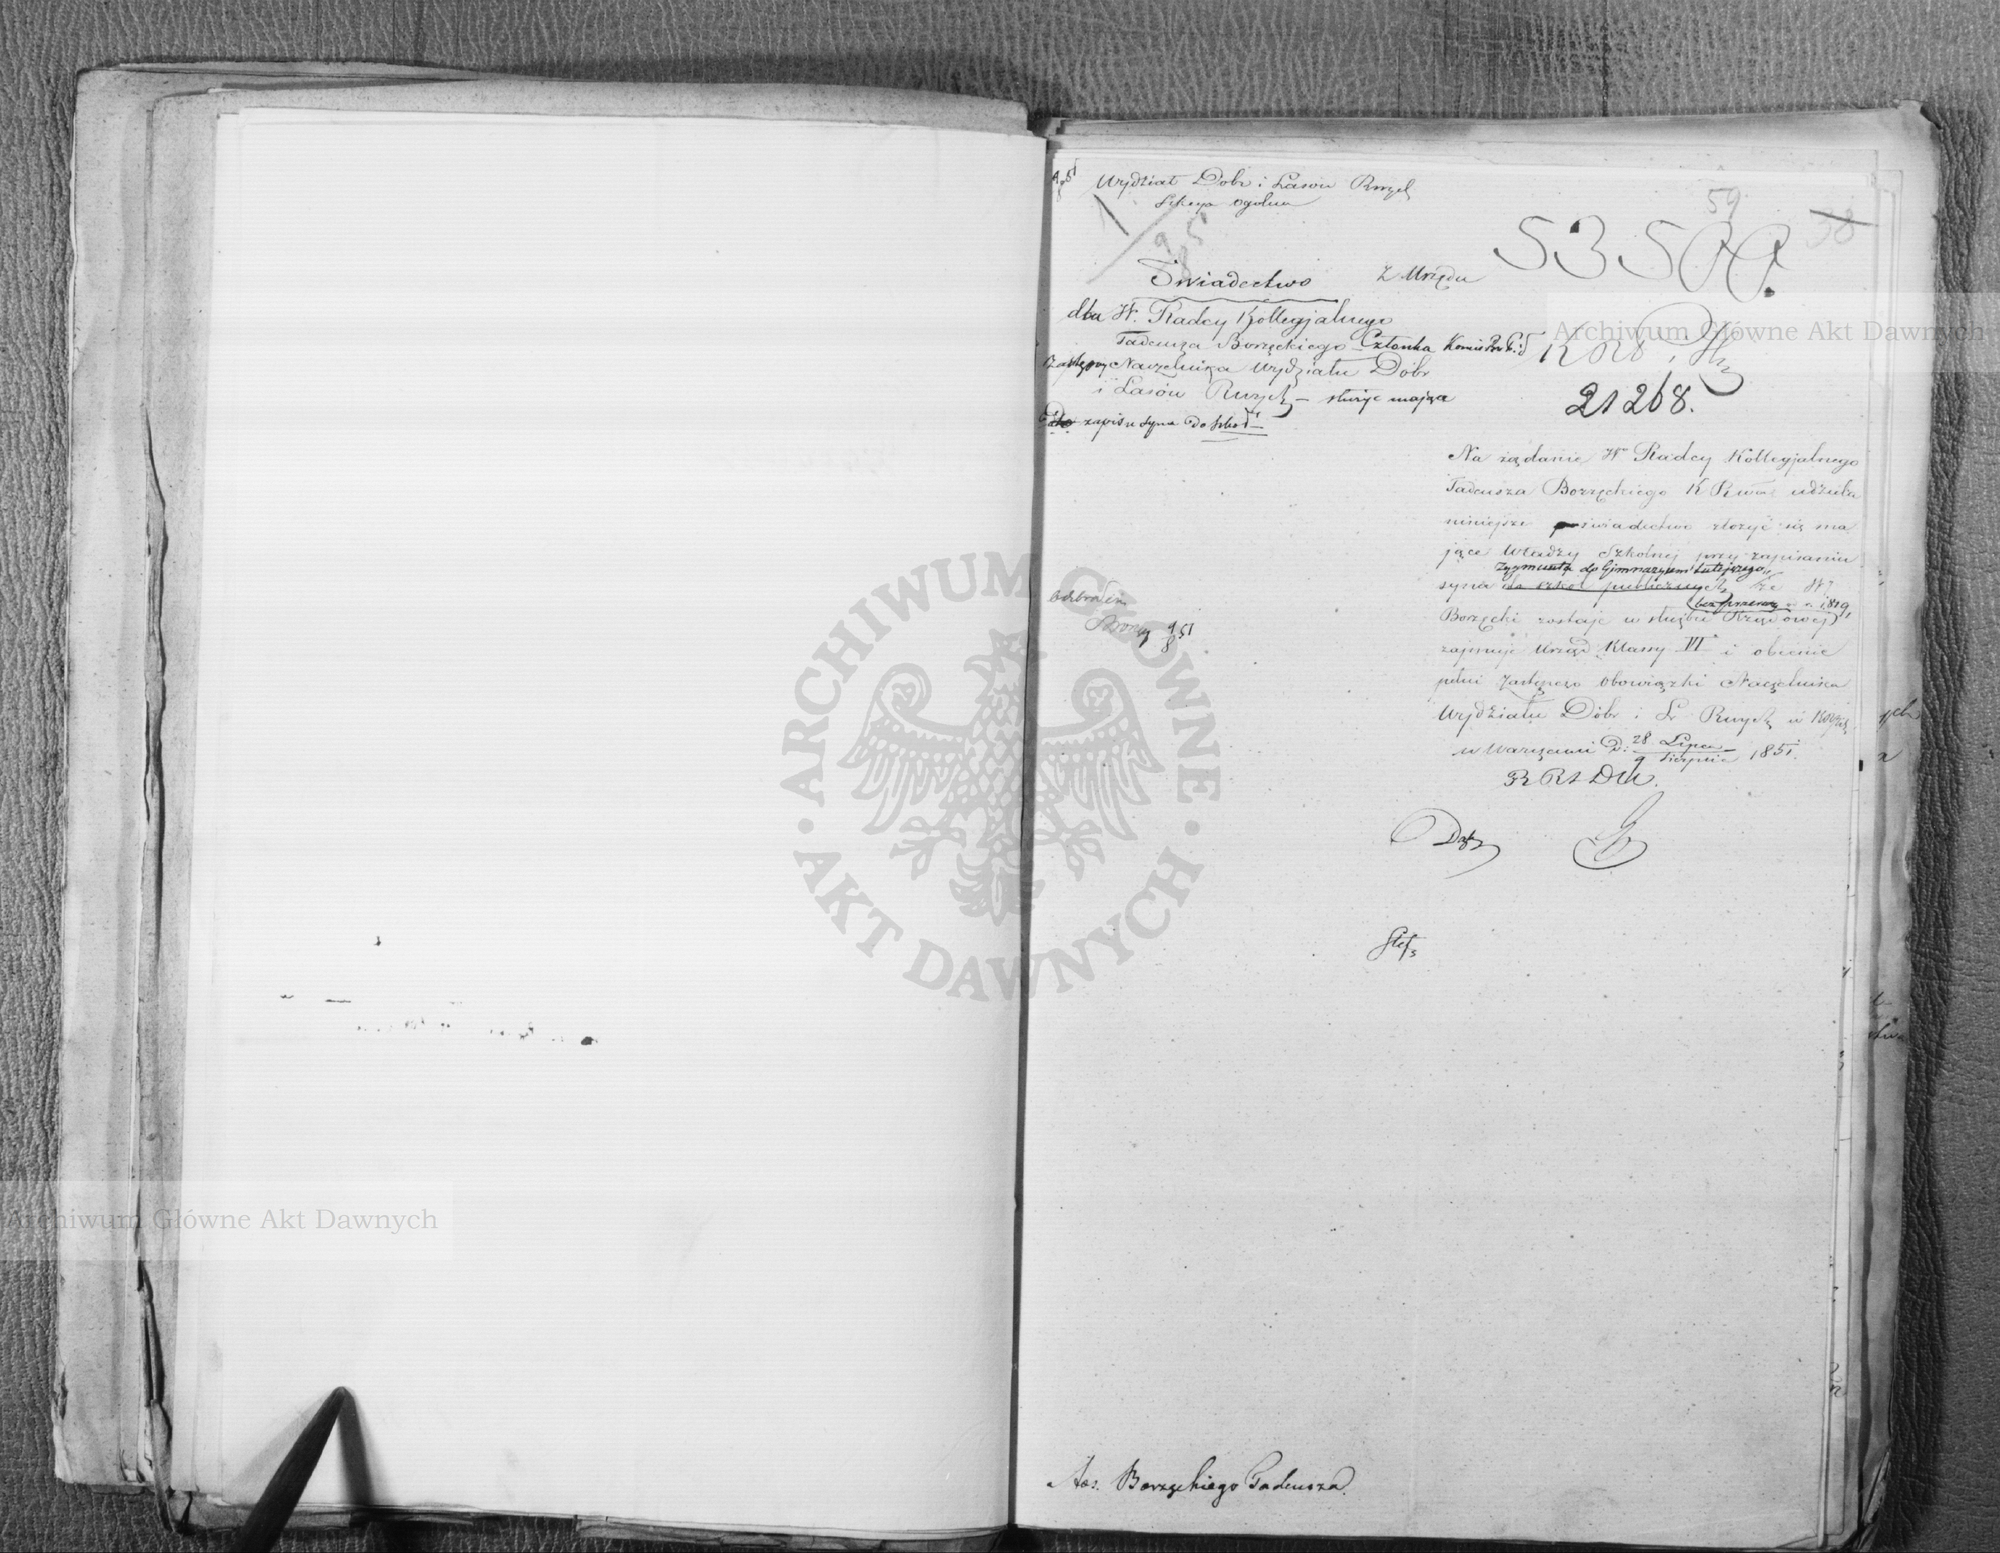 Wydział Dobr i Lasow Rząd
Sekcya ogólna
59
38
53500.
Świadectwo
z Urzędu
dla W. Radcy Kollegjalnego
Tadeusza Borzęckiego Członka
Zastępcy Naczelnika Wydziału Dóbr
i Lasów Rządh – służyć mające
do zapisu syna do szkoł
21268.
Na żądanie W Radcy Kollegjalnego
Tadeusza Borzęckiego udziela
niniejsze świadectwo złożyć się ma
jące Władzy Szkolnej przy zapisaniu
Zygmunta do Gimnazyum tutejszego
syna do szkol publicznych że W
bez przerwy od r. 1819
Borzęcki zostaje w służbie Rządowej
zajmuje Urząd Klassy VI i obecnie
pełni Zastępczo obowiązki Naczelnika
Wydziału Dobr i L Rządh w
w Warszawie D: 28 Lipca
9 Sierpnia 1851.
Odebrałem
9/8 51
Aos. Borzęckiego Tadeusza.
Archiwum Główne Akt Dawnych
ARCHIWUM GŁÓWNE
· AKT DAWNYCH ·
Archiwum Główne Akt Dawnych